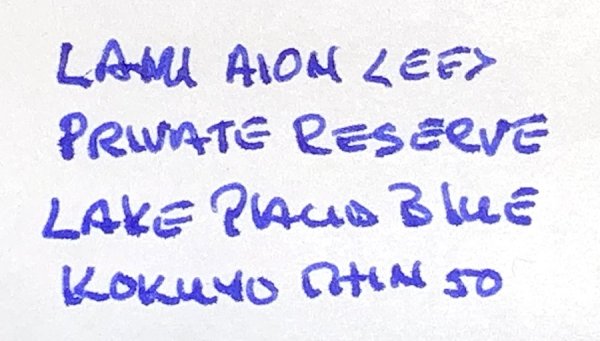 LAMY AION <EF>
PRIVATE RESERVE
LAKE PLACID BLUE
KOKUYO THIN 50